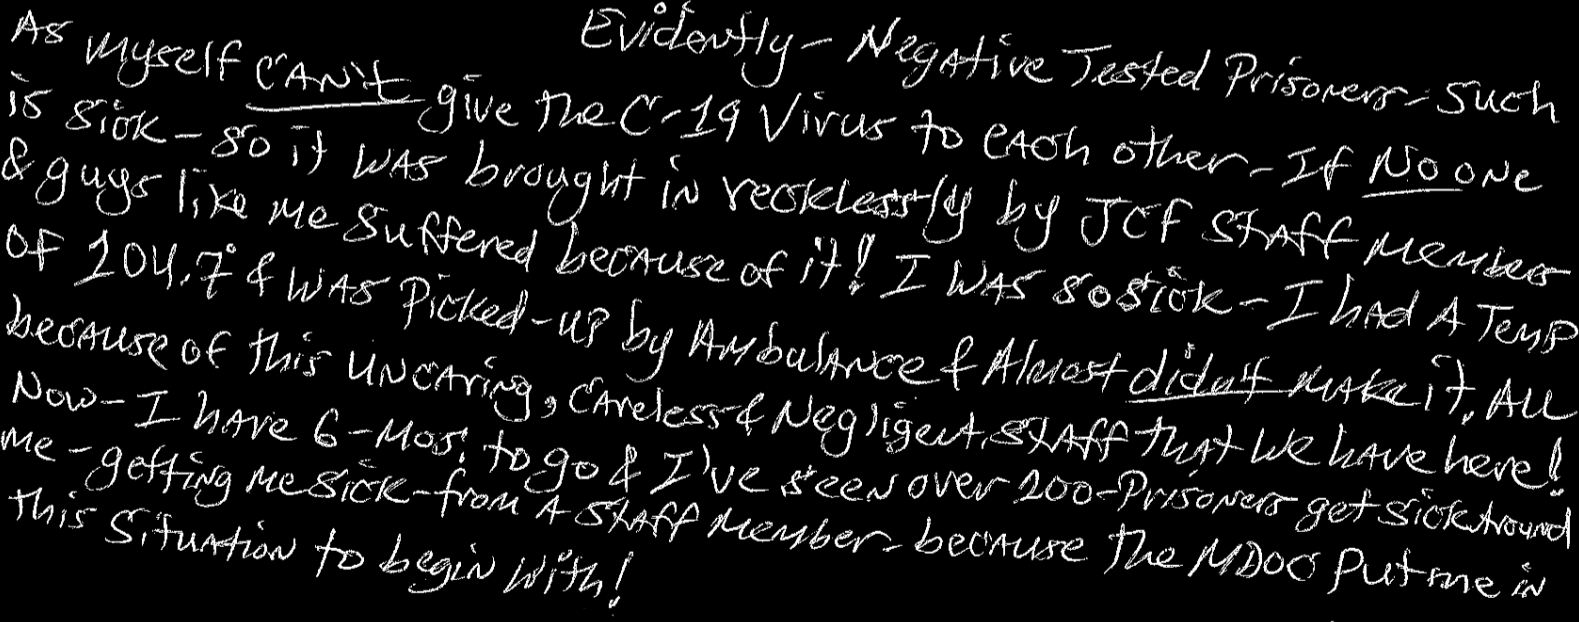 Evidently - Negative Tested Prisoners - such
As myself CAN't give the C-19 Virus to each other - If No one
is sick - so it was brought in recklessly by JCF Staff members
& guys like me suffered because of it! I was so sick - I had A Temp
of 104.7° & was Picked-up by Ambulance & Almost didn't make it, All
because of this uncaring, careless & Negligent staff that we have here!
Now - I have 6-Mos. to go & I've seen over 200-Prisoners get sick around
me - getting me sick - from A staff member - because the MDOC put me in
this situation to begin with!